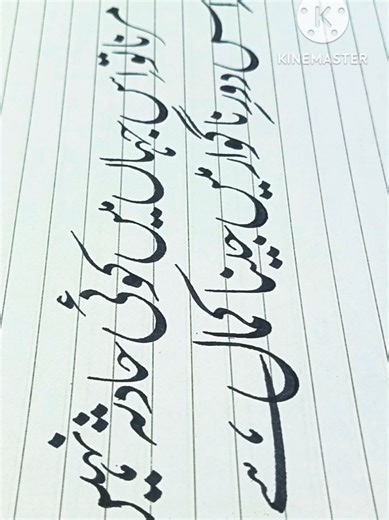 KINEMASTER
مرنا تو اس جہاں میں کوئی حادثہ نہیں
اس دورِ ناگوار میں جینا کمال ہے